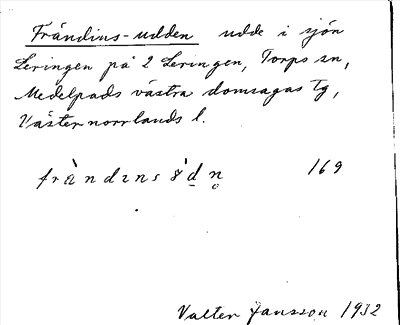 Frändins-udden udde i sjön
Leringen på 2 Leringen, Torps sn,
Medelpads västra domsagas tg,
Västernorrlands l.
169
Valter Jansson 1932